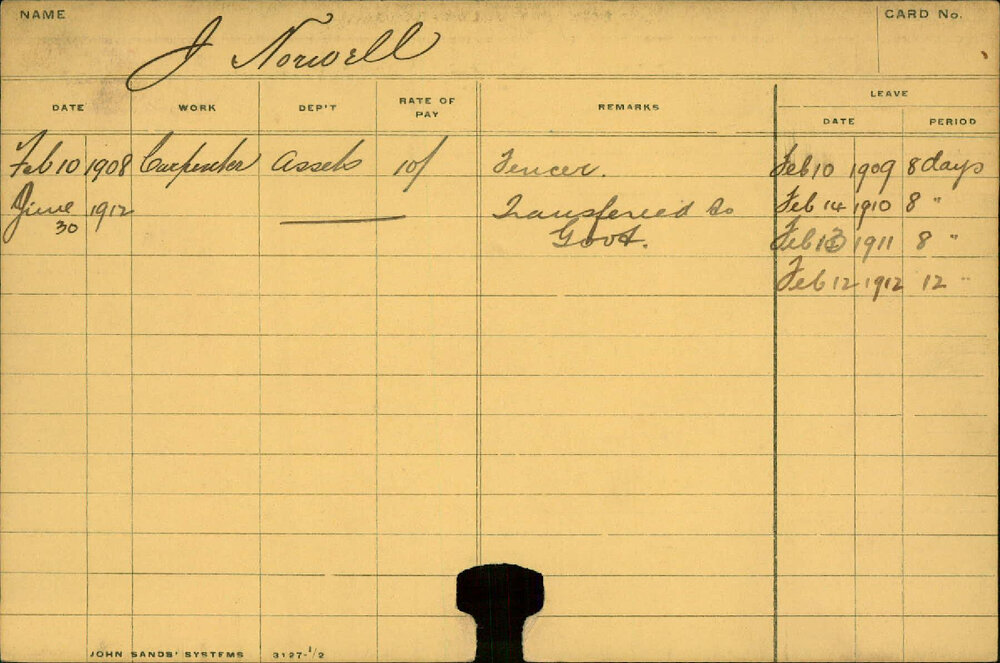 NAME
CARD No.
J Norwell
LEAVE
DATE WORK DEP'T RATE OF PAY REMARKS DATE PERIOD
Feb 10 1908 Carpenter Assets 10/ Fencer. Feb 10 1909 8 days
June 30 1912 Transferred to Feb 14 1910 8 "
Govt. Feb 13 1911 8 "
Feb 12 1912 12 "
JOHN SANDS' SYSTEMS 3127-1/2